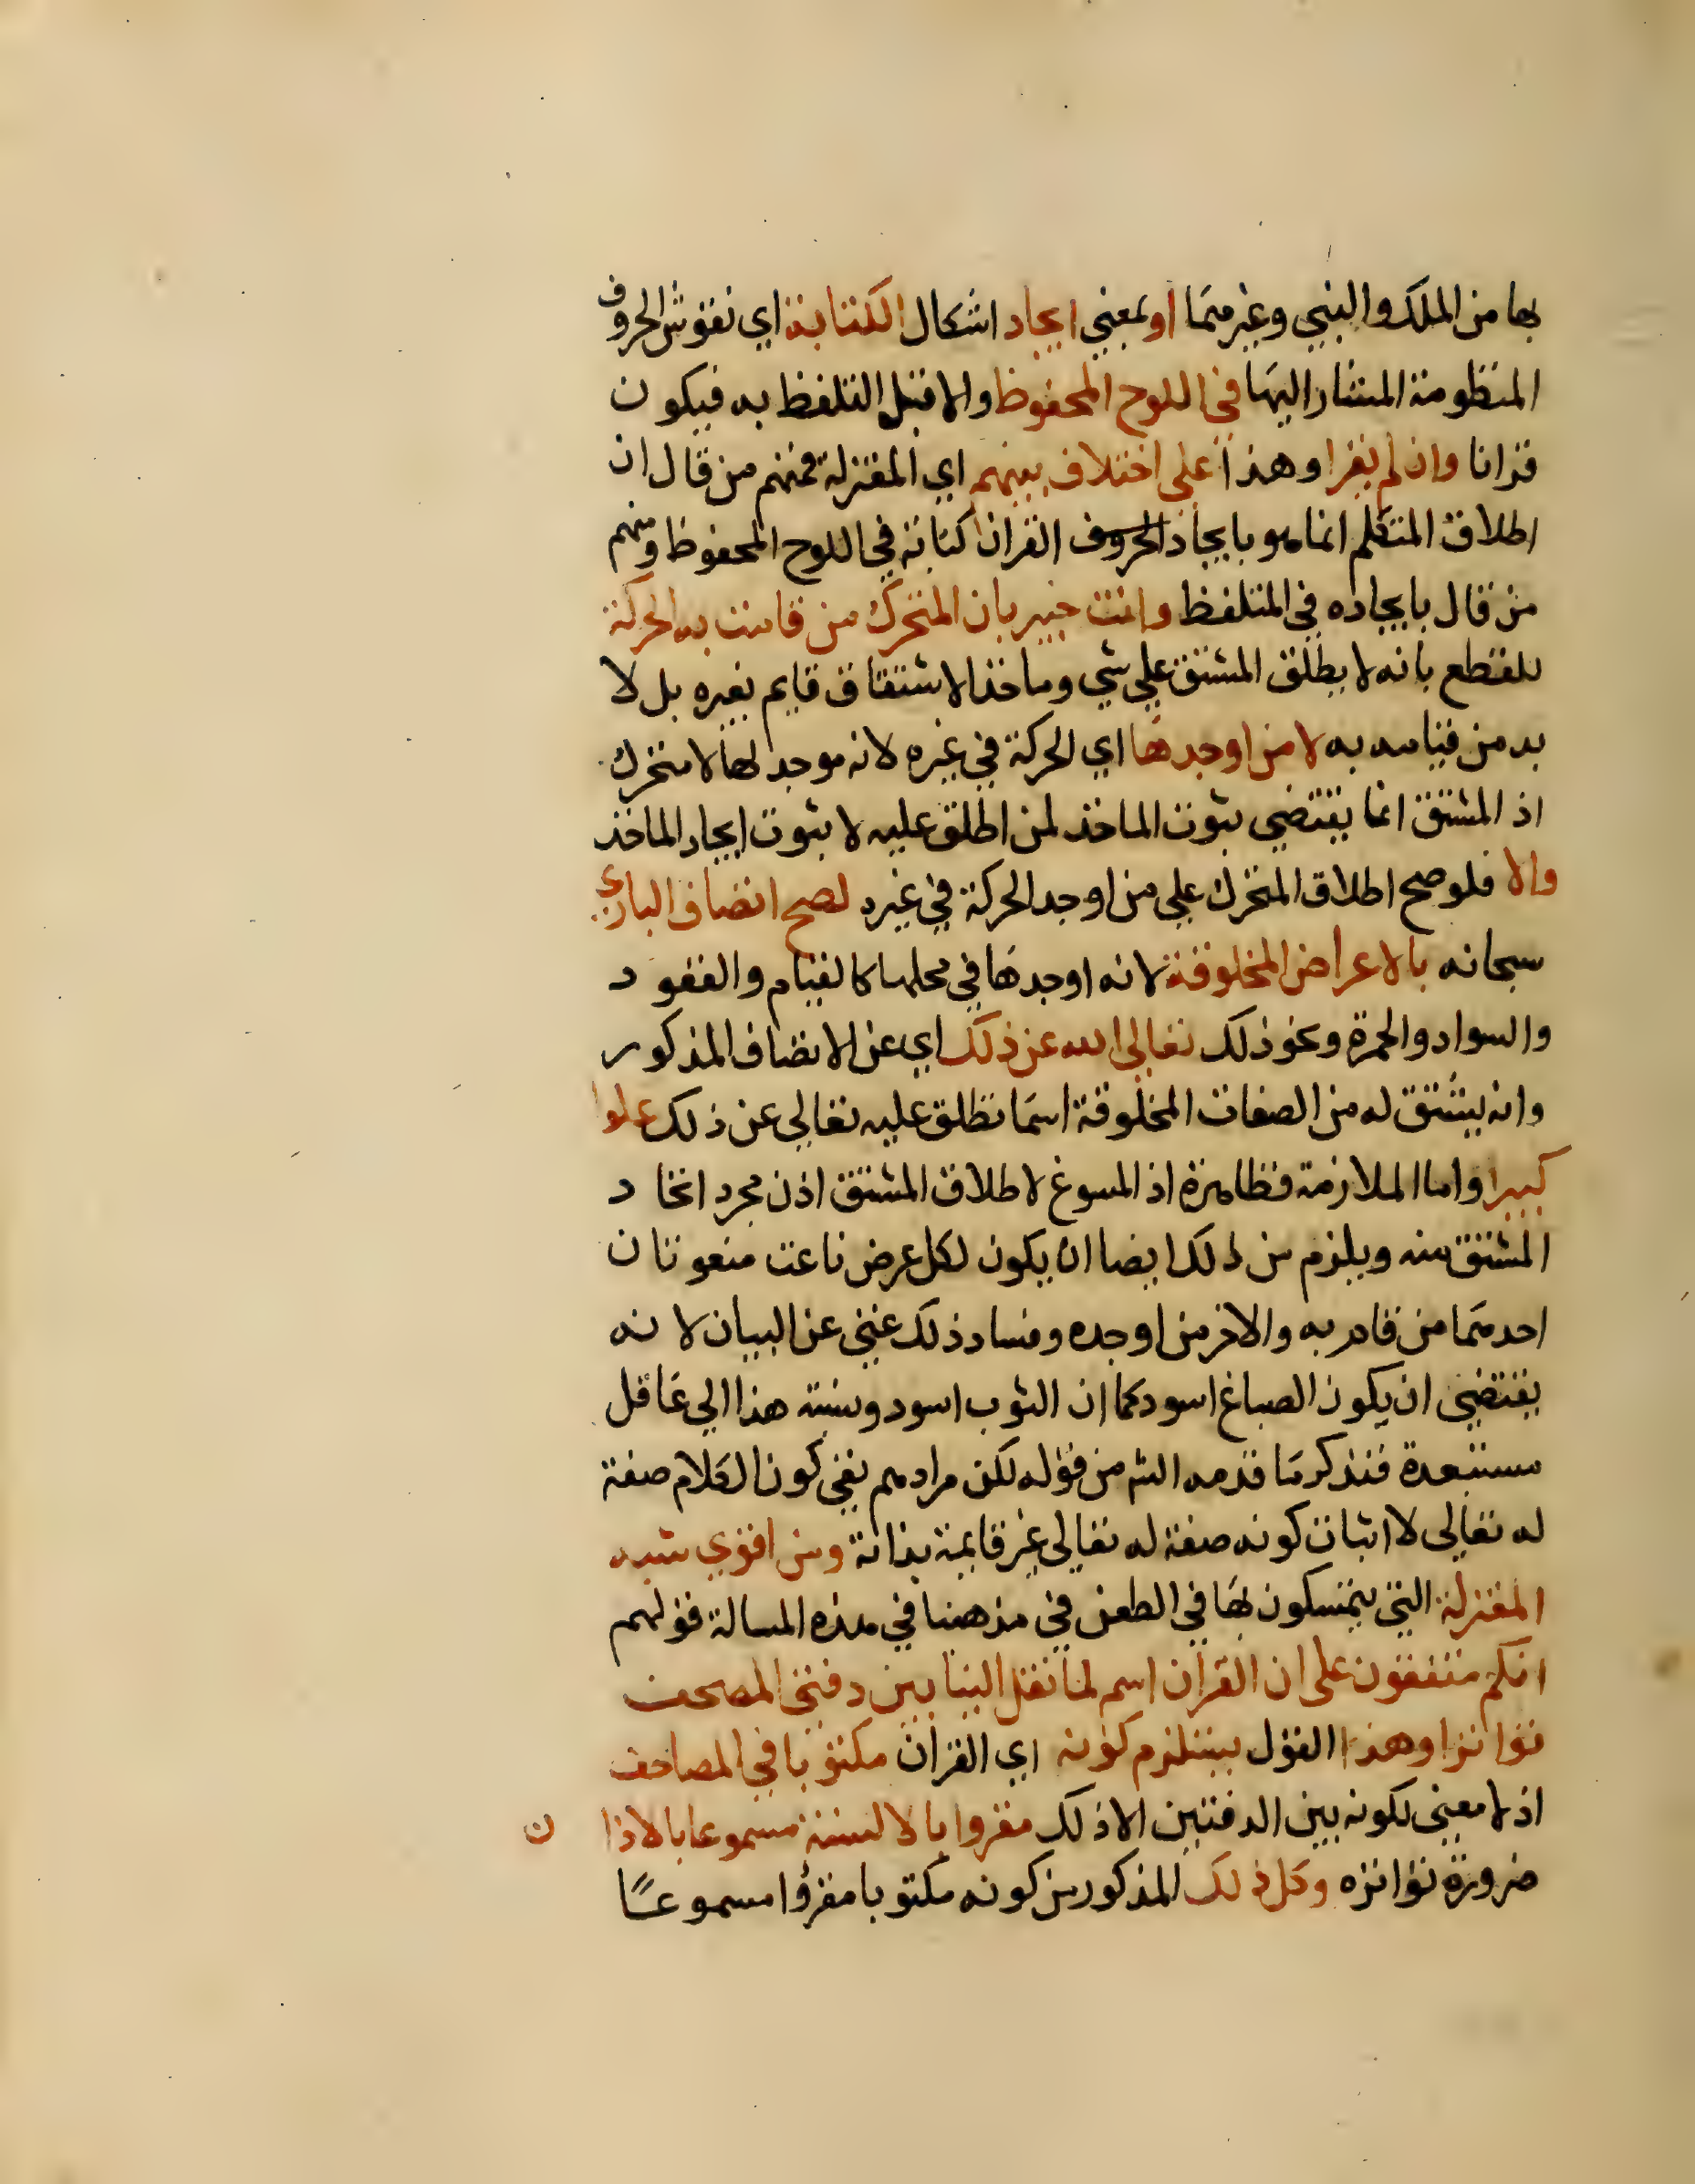 بها من الملك والنبي وغيرهما او بمعني ايجاد اشكال الكتابة اي نقوش الحروف
المنظومة المشار اليها في اللوح المحفوظ والا قبل التلفظ به فيكون
قرانا وان لم يقرا وهذا علي اختلاف بينهم اي المعتزلة فمنهم من قال ان
اطلاق المتكلم انما هو بايجاد الحروف القران كتابة في اللوح المحفوظ ومنهم
من قال بايجاده في المتلفظ وانت خبير بان المتحرك من قامت به الحركة
للقطع بانه لا يطلق المشتق علي شي وماخذ الاشتقاق قايم بغيره بل لا
بد من قيامه به لا من اوجدها اي الحركة في غيره لانه موجد لها لا متحرك
اذ المشتق انما يقتضي ثبوت الماخذ لمن اطلق عليه لا ثبوت ايجاد الماخذ
والا فلو صح اطلاق المتحرك علي من اوجد الحركة في غيره لصح اتصاف الباري
سبحانه بالاعراض المخلوقة لانه اوجدها في محلها كالقيام والقعود
والسواد والحمرة ونحو ذلك تعالي الله عن ذلك اي عن الاتصاف المذكور
وانه يشتق له من الصفات المخلوقة اسما تطلق عليه تعالي عن ذلك علوا
كبيرا واما الملازمة فظاهرة اذ المسوغ لاطلاق المشتق اذن مجرد اتخاد
المشتق منه ويلزم من ذلك ايضا ان يكون لكل عرض ناعت منعوتان
احدهما من قام به والاخر من اوجده وفساد ذلك غني عن البيان لانه
يقتضي ان يكون الصباغ اسود كما ان الثوب اسود ونسبة هذا الي عاقل
مستبعدة فتذكر ما قدمه الش من قوله لكن مرادهم نفي كون الكلام صفة
له تعالي لا اثبات كونه صفة له تعالي غير قايمة بذاته ومن اقوي شبه
المعتزلة التي يتمسكون بها في الطعن في مذهبنا في هذه المسالة قولهم
انكم متفقون على ان القران اسم لما نقل الينا بين دفتي المصحف
تواترا وهذا القول يستلزم كونه اي القران مكتوبا في المصاحف
اذ لا معني لكونه بين الدفتين الا ذلك مقروا بالالسنة مسموعا بالاذان
ضرورة تواتره وكل ذلك المذكور من كونه مكتوبا مقرؤا مسموعًا